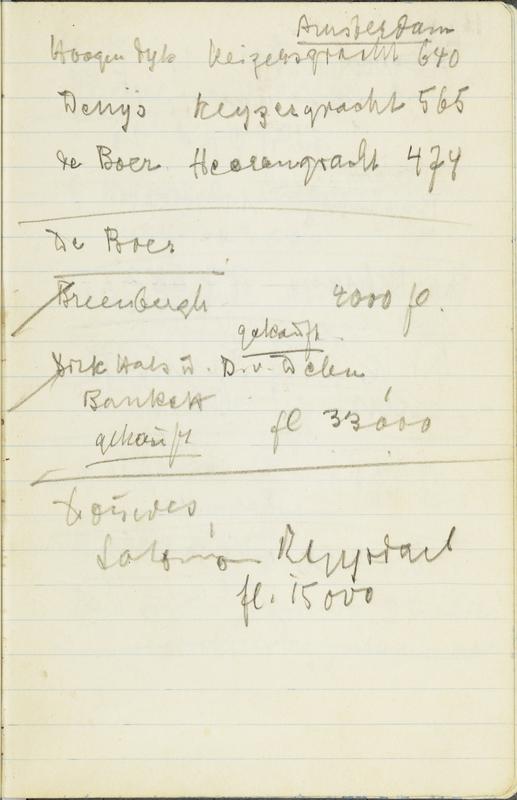 Amsterdam
Hoogendyk Keizersgracht 640
Denijs Keyzersgracht 565
de Boer Heerengracht 474
De Boer
Breenbergh 4000 fl.
gekauft
Dirk Hals u. D. v. Delen
Bankett
gekauft fl 33000
Douwes
Salomon Ruysdael
fl. 15000